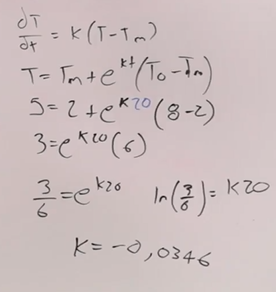 dT/dt = K(T-Tm)
T=Tm+e^kt(To-Tm)
5=2+e^k20(8-2)
3=e^k20(6)
3/6=e^k20 ln(3/6)=K20
K=-0,0346